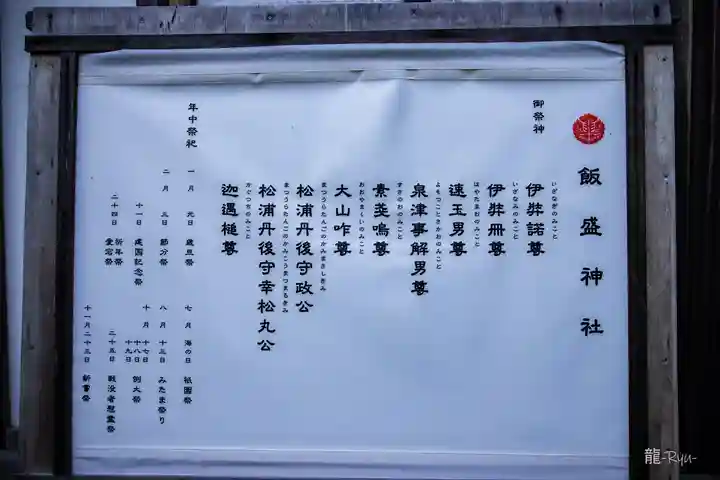 飯盛神社
御祭神
伊弉諾尊
いざなぎのみこと
伊弉冊尊
いざなみのみこと
速玉男尊
はやたまおのみこと
泉津事解男尊
よもつことさかおのみこと
素戔嗚尊
すさのおのみこと
大山咋尊
おおやまくいのみこと
松浦丹後守政公
まつうらたんごのかみまさしぎみ
松浦丹後守幸松丸公
まつうらたんごのかみこうまつまるぎみ
迦遇槌尊
かぐつちのみこと
年中祭祀
一月 元日 歳旦祭
二月 三日 節分祭
十一日 建国記念祭
祈年祭
二十四日 愛宕祭
七月 海の日 祇園祭
八月 十三日 みたま祭り
十月 十七日
十八日 例大祭
十九日
二十五日 戦没者慰霊祭
十一月二十三日 新嘗祭
龍-Ryu-